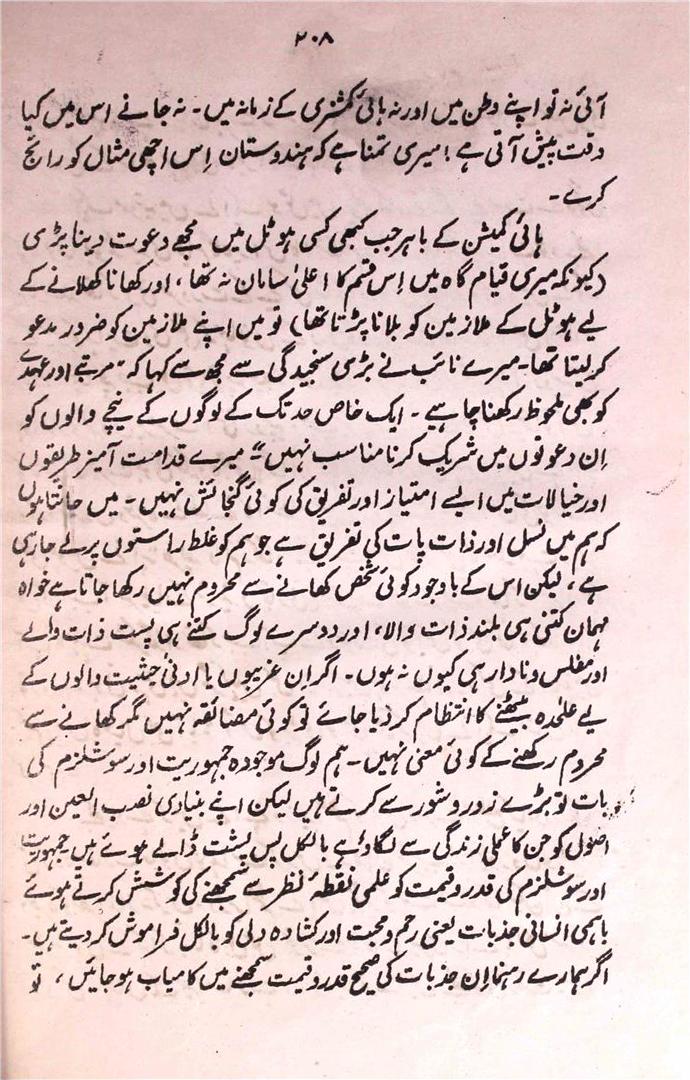 ۲۰۸
آئی نہ تو اپنے وطن میں اور نہ ہائی کمشنری کے زمانہ میں۔ نہ جانے اس میں کیا
دقت پیش آتی ہے! میری تمنا ہے کہ ہندوستان اِس اچھی مثال کو رائج
کرے۔
ہائی کمیشن کے باہر جب کبھی کسی ہوٹل میں مجھے دعوت دینا پڑی
(کیونکہ میری قیام گاہ میں اِس قسم کا اعلیٰ سامان نہ تھا، اور کھانا کھلانے کے
لیے ہوٹل کے ملازمین کو بلانا پڑتا تھا) تو میں اپنے ملازمین کو ضرور مدعو
کر لیتا تھا۔ میرے نائب نے بڑی سنجیدگی سے مجھ سے کہا کہ "مرتبے اور عہدے
کو بھی ملحوظ رکھنا چاہیے۔ ایک خاص حد تک کے لوگوں کے نیچے والوں کو
اِن دعوتوں میں شریک کرنا مناسب نہیں" میرے قدامت آمیز طریقوں
اور خیالات میں ایسے امتیاز اور تفریق کی کوئی گنجائش نہیں۔ میں جانتا ہوں
کہ ہم میں نسل اور ذات پات کی تفریق ہے جو ہم کو غلط راستوں پر لے جا رہی
ہے، لیکن اس کے باوجود کوئی شخص کھانے سے محروم نہیں رکھا جاتا ہے خواہ
مہمان کتنی ہی بلند ذات والا، اور دوسرے لوگ کتنے ہی پست ذات والے
اور مفلس و نادار ہی کیوں نہ ہوں۔ اگر اِن غریبوں یا ادنیٰ حیثیت والوں کے
لیے علیٰحدہ بیٹھنے کا انتظام کر دیا جائے تو کوئی مضائقہ نہیں مگر کھانے سے
محروم رکھنے کے کوئی معنی نہیں۔ ہم لوگ موجودہ جمہوریت اور سوشلزم کی
بات تو بڑے زور و شور سے کرتے ہیں لیکن اپنے بنیادی نصب العین اور
اصول کو جن کا عملی زندگی سے لگاؤ ہے بالکل پس پشت ڈالے ہوئے ہیں جمہوریت
اور سوشلزم کی قدر و قیمت کو علمی نقطۂ نظر سے سمجھنے کی کوشش کرتے ہوئے
باہمی انسانی جذبات یعنی رحم و محبت اور کشادہ دلی کو بالکل فراموش کر دیتے ہیں۔
اگر ہمارے رہنما اِن جذبات کی صحیح قدر و قیمت سمجھنے میں کامیاب ہو جائیں، تو